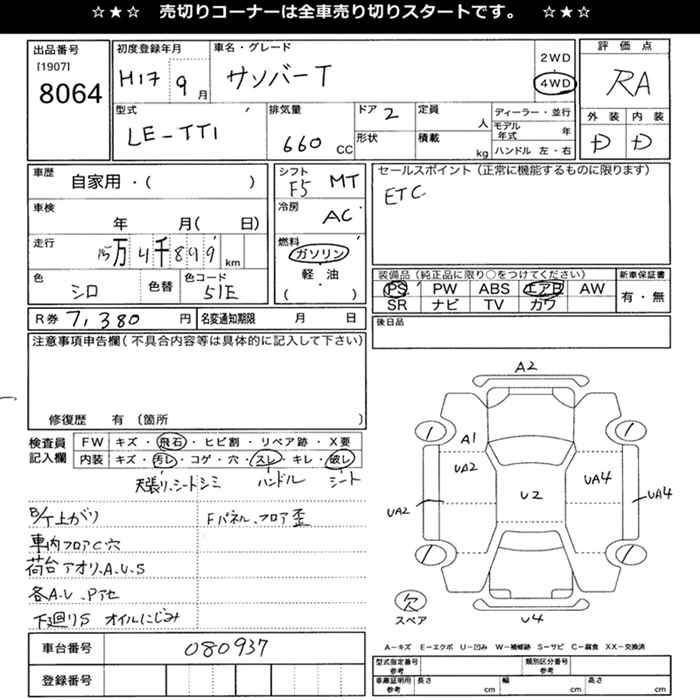 ☆★☆ 売切りコーナーは全車売り切りスタートです。 ☆★☆
出品番号
[1907]
8064
初度登録年月
H17 9月
車名・グレード
サンバーT
2WD
4WD
評価点
RA
型式
LE-TT1
排気量
660 CC
ドア 2
形状
定員
人
積載
kg
ディーラー・並行
モデル年式 年
ハンドル 左・右
外装 内装
D D
車歴
自家用・( )
車検
年 月( 日)
走行
15万4千899km
色
シロ
色替
色コード
51E
シフト
F5 MT
冷房
AC
燃料
ガソリン
軽・油
( )
セールスポイント(正常に機能するものに限ります)
ETC
装備品(純正品に限り○をつけてください)
PS PW ABS エアB AW
SR ナビ TV カワ
新車保証書
有・無
R券 7,380円
名変通知期限 月 日
後日品
注意事項申告欄(不具合内容等は具体的に記入して下さい)
修復歴 有 (箇所 )
検査員記入欄
FW キズ・飛石・ヒビ割・リペア跡・X要
内装 キズ・汚レ・コゲ・穴・スレ・キレ・破レ
天張り、シートシミ ハンドル シート
B/ケ上がり
Fパネル、フロア歪
車内フロアC穴
荷台アオリ、A、U、S
各A、U、Pアセ
下廻りS オイルにじみ
車台番号
080937
登録番号
A2
1 1
A1
UA2 UA4
UA2 U2 UA4
1 1
欠
スペア
U4
A-キズ E-エクボ U-凹み W-補修跡 S-サビ C-腐食 XX-交換済
型式指定番号 参考
類別区分番号 参考
車庫証明用 参考
長さ cm
幅 cm
高さ cm